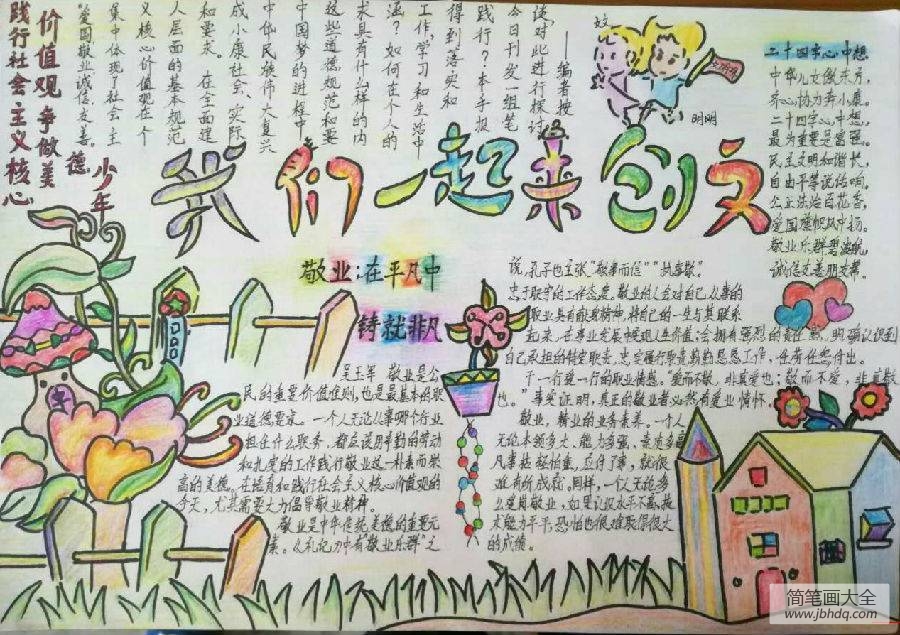 践行社会主义核心
价值观 争做美
德少年
——编者按
谈对此进行探讨
今日刊发一组笔
践行?本手报
得到落实和
工作学习和生活中
涵?如何在个人的
求具有什么样的内
这些道德规范和要
中国梦的进程中
中华民族伟大复兴
成小康社会、实际
和要求。在全面建
人层面的基本规范
义核心价值观在个
集中体现了社会主
"爱国敬业诚信友善。
文明
明明
二十四字心中想
中华儿女傲东方,
齐心协力奔小康。
二十四字心中想,
最为重要是富强。
民主文明和谐长,
自由平等说倍响。
公正法治百花香,
爱国旗帜风中扬。
敬业乐群
诚信友善朋友帮。
我们一起来创文
敬业:在平凡中
铸就非凡
吴玉军 敬业是公
民的重要价值准则,也是最基本的职
业道德要求。一个人无论从事哪个行业
担任什么职务,都应该用辛勤的劳动
和扎实的工作践行敬业这一朴素而崇
高的美德。在培育和践行社会主义核心价值观的
今天,尤其需要大力倡导敬业精神。
敬业是中华传统美德的重要元
素。《礼记》中有"敬业乐群"之
说,孔子也主张"敬事而信""执事敬"。
忠于职守的工作态度。敬业的人会对自己从事的
职业具有献身精神,将自己的一生与其联系
起来,在事业发展中展现人生价值;会拥有强烈的责任感,明确认识到
自己承担的特定职责,忠实履行职责,勤勤恳恳工作,任劳任怨付出。
干一行爱一行的职业情感。"爱而不敬,非真爱也;敬而不爱,非真敬
也。"事实证明,真正的敬业者必然有爱业情怀。
敬业,精业的业务素养。一个人
无论本领多大、能力多强,若是多是
凡事拈轻怕重、应付了事,就很
难有所成就。同样,一个人无论多
么爱岗敬业,如果让技水平不高,技
术能力平平,恐怕也很难取得很大
的成绩。
简笔画大全
www.jbhdq.com